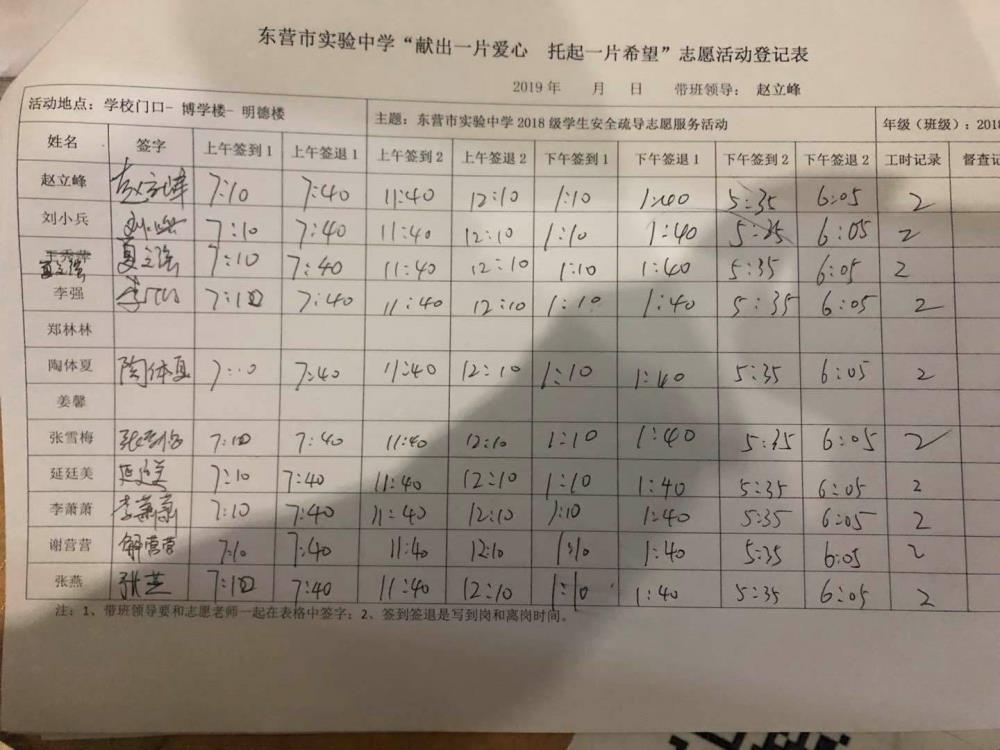 东营市实验中学“献出一片爱心 托起一片希望”志愿活动登记表
2019 年 月 日 带班领导： 赵立峰
活动地点：学校门口- 博学楼- 明德楼 主题：东营市实验中学 2018 级学生安全疏导志愿服务活动 年级（班级）：2018
姓名 签字 上午签到 1 上午签退 1 上午签到 2 上午签退 2 下午签到 1 下午签退 1 下午签到 2 下午签退 2 工时记录 督查记
赵立峰 赵立峰 7:10 7:40 11:40 12:10 1:10 1:40 5:35 6:05 2
刘小兵 刘小兵 7:10 7:40 11:40 12:10 1:10 1:40 5:35 6:05 2
王秀萍 夏立强 夏立强 7:10 7:40 11:40 12:10 1:10 1:40 5:35 6:05 2
李强 李强 7:10 7:40 11:40 12:10 1:10 1:40 5:35 6:05 2
郑林林
陶体夏 陶体夏 7:10 7:40 11:40 12:10 1:10 1:40 5:35 6:05 2
姜馨
张雪梅 张雪梅 7:10 7:40 11:40 12:10 1:10 1:40 5:35 6:05 2
延廷美 延廷美 7:10 7:40 11:40 12:10 1:10 1:40 5:35 6:05 2
李萧萧 李萧萧 7:10 7:40 11:40 12:10 1:10 1:40 5:35 6:05 2
谢营营 谢营营 7:10 7:40 11:40 12:10 1:10 1:40 5:35 6:05 2
张燕 张燕 7:10 7:40 11:40 12:10 1:10 1:40 5:35 6:05 2
注：1、带班领导要和志愿老师一起在表格中签字；2、签到签退是写到岗和离岗时间。